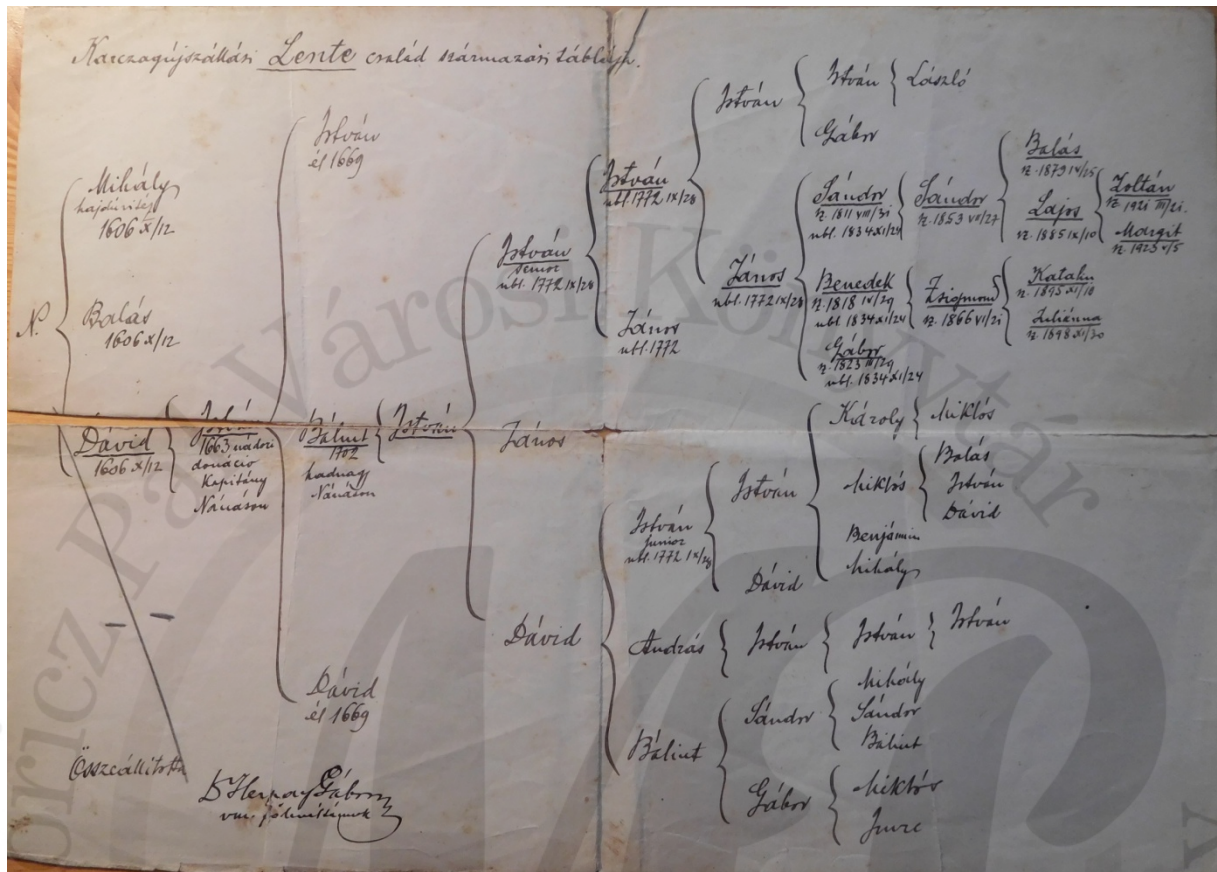 Karczagújszállási Lente család származási táblája.
N.
Mihály
hajdúvitéz
1606 X/12
Balás
1606 X/12
Dávid
1606 X/12
István
1663 nádori
donáció
Kapitány
Nánáson
István
él 1669
Bálint
1702
hadnagy
Nánáson
Dávid
él 1669
István
István
senior
ubl. 1772 IX/28
János
Dávid
István
ubl. 1772 IX/28
János
ubl. 1772
István
junior
ubl. 1772 IX/28
András
Bálint
István
János
ubl. 1772 IX/28
István
Dávid
István
Sándor
Gábor
István
Gábor
Sándor
n. 1811 VIII/31
ubl. 1834 XI/24
Benedek
n. 1818 IV/29
ubl. 1834 XI/24
Gábor
n. 1823 III/29
ubl. 1834 XI/24
Károly
Miklós
Benjámin
Mihály
István
Mihály
Sándor
Bálint
Miklós
Imre
László
Sándor
n. 1853 VII/27
Zsigmond
n. 1866 VI/21
Miklós
Balás
István
Dávid
István
Balás
n. 1879 IV/25
Lajos
n. 1885 IX/10
Katalin
n. 1895 XI/10
Juliánna
n. 1898 XI/30
Zoltán
n. 1921 III/21.
Margit
n. 1923 V/5
Összeállította
Dr Herpay Gábor
Móricz Pál Városi Könyvtár